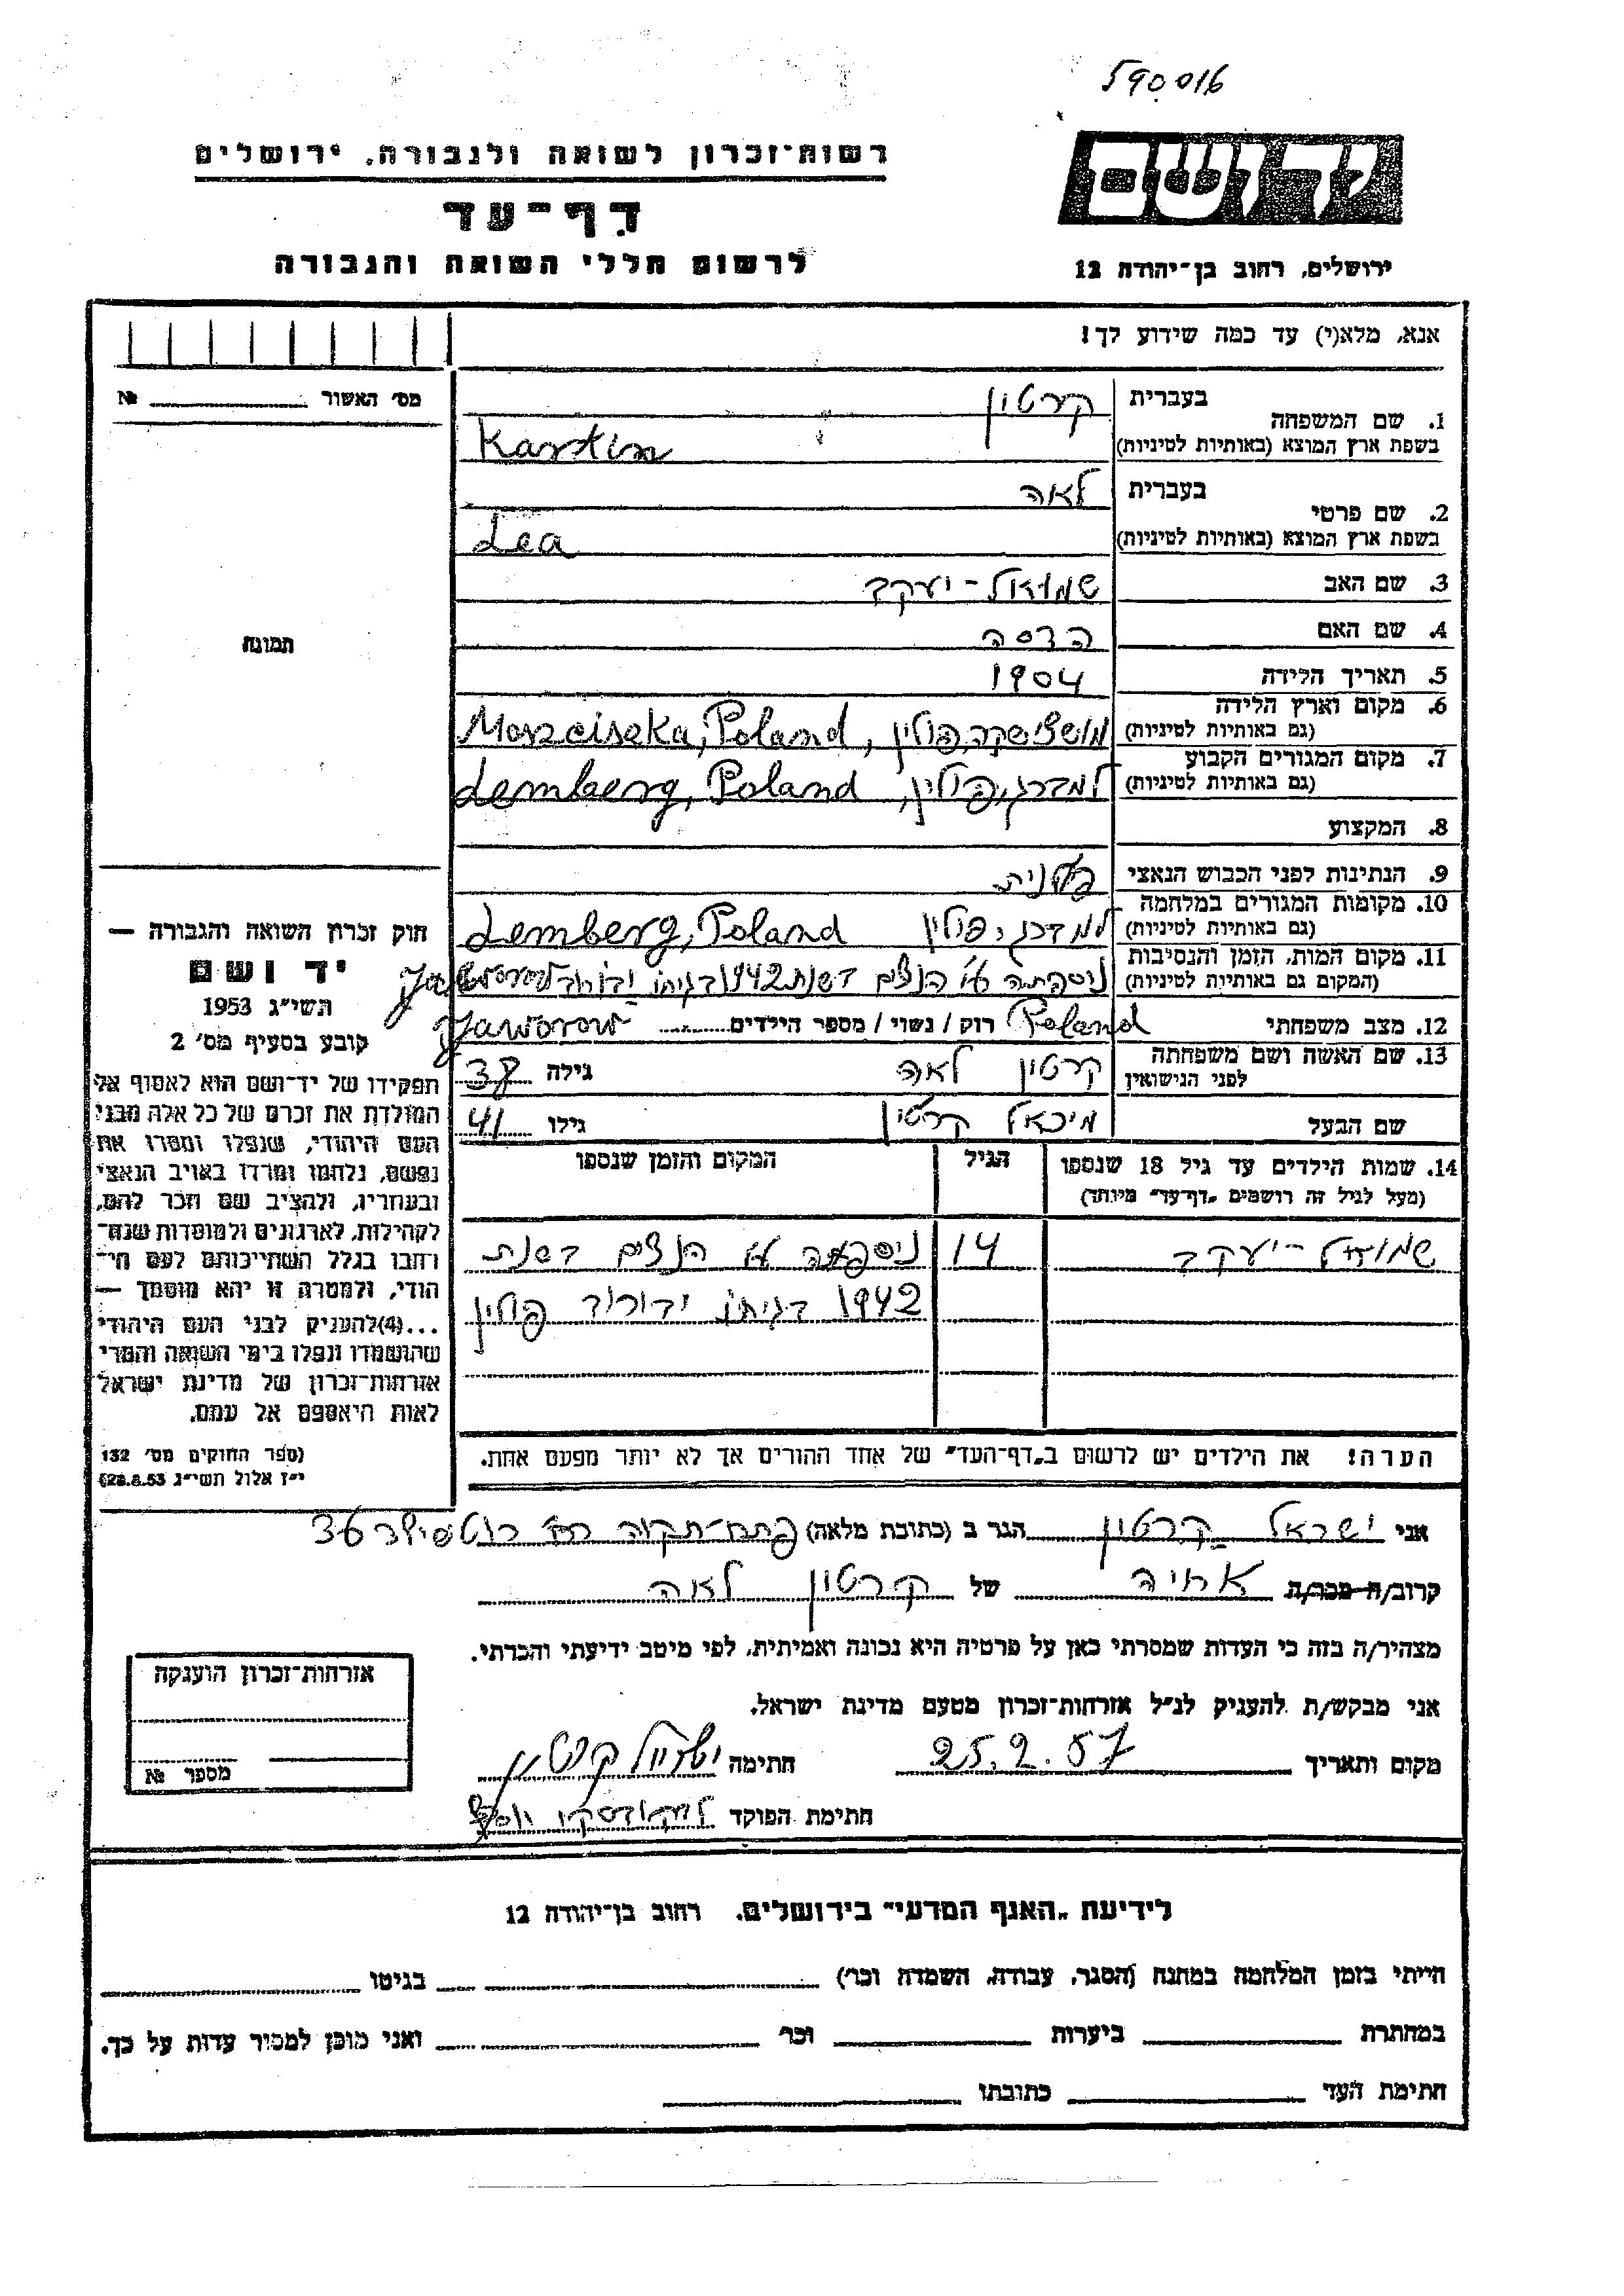 590016
רשות־זכרון לשואה ולגבורה, ירושלים
יד ושם
דף־עד
לרשום חללי השואה והגבורה
ירושלים, רחוב בן־יהודה 12
אנא, מלא(י) עד כמה שידוע לך!
מס׳ האשור № 
1. שם המשפחה בעברית קרטין
בשפת ארץ המוצא (באותיות לטיניות) Kartin
2. שם פרטי בעברית לאה
בשפת ארץ המוצא (באותיות לטיניות) Lea
3. שם האב שמואל-יעקב
4. שם האם הדסה
תמונה
5. תאריך הלידה 1904
6. מקום וארץ הלידה
(גם באותיות לטיניות) פולין, Moszciseka, Poland
7. מקום המגורים הקבוע
(גם באותיות לטיניות) למברג, פולין, Lemberg, Poland
8. המקצוע
9. הנתינות לפני הכבוש הנאצי
10. מקומות המגורים במלחמה
(גם באותיות לטיניות) למברג, פולין Lemberg, Poland
11. מקום המות, הזמן והנסיבות
(המקום גם באותיות לטיניות) ניספתה ע״י הנאצים בשנת 1942 בגיטו
12. מצב משפחתי Poland רוק / נשוי / מספר הילדים Jaworow
13. שם האשה ושם משפחתה
לפני הנישואין קרטין לאה גילה 38
שם הבעל מיכאל קרטין גילו 41
14. שמות הילדים עד גיל 18 שנספו הגיל המקום והזמן שנספו
(מעל לגיל זה רושמים „דף־עד״ מיוחד)
שמואל-יעקב 14 ע״י הנאצים בשנת
1942 בגיטו פולין
הערה! את הילדים יש לרשום ב„דף־העד״ של אחד ההורים אך לא יותר מפעם אחת.
חוק זכרון השואה והגבורה —
יד ושם
תשי״ג 1953
קובע בסעיף מס׳ 2
תפקידו של יד־ושם הוא לאסוף אל
המולדת את זכרם של כל אלה מבני
העם היהודי, שנפלו ומסרו את
נפשם, נלחמו ומרדו באויב הנאצי
ובעוזריו, ולהציב שם וזכר להם,
לקהילות, לארגונים ולמוסדות שנח־
רבו בגלל השתייכותם לעם הי־
הודי, ולמטרה זו יהא מוסמך —
...(4) להעניק לבני העם היהודי
שהושמדו ונפלו בימי השואה והמרי
אזרחות־זכרון של מדינת ישראל
לאות היאספם אל עמם.
(ספר החוקים מס׳ 132
י״ז אלול תשי״ג 28.8.53)
אני ישראל קרטין הגר ב (כתובת מלאה) פתח-תקוה רח׳ רוטשילד 36
קרוב/ה מכר/ה של קרטין לאה
מצהיר/ה בזה כי העדות שמסרתי כאן על פרטיה היא נכונה ואמיתית, לפי מיטב ידיעתי והכרתי.
אני מבקש/ת להעניק לנ״ל אזרחות־זכרון מטעם מדינת ישראל.
מקום ותאריך 25.2.57 חתימה ישראל קרטין
חתימת הפוקד
אזרחות־זכרון הוענקה
מספר №
לידיעת „האגף המדעי״ בירושלים, רחוב בן־יהודה 12
הייתי בזמן המלחמה במחנה (הסגר, עבודה, השמדה וכו׳) בגיטו
במחתרת ביערות וכו׳ ואני מוכן למסור עדות על כך.
חתימת העד כתובתו